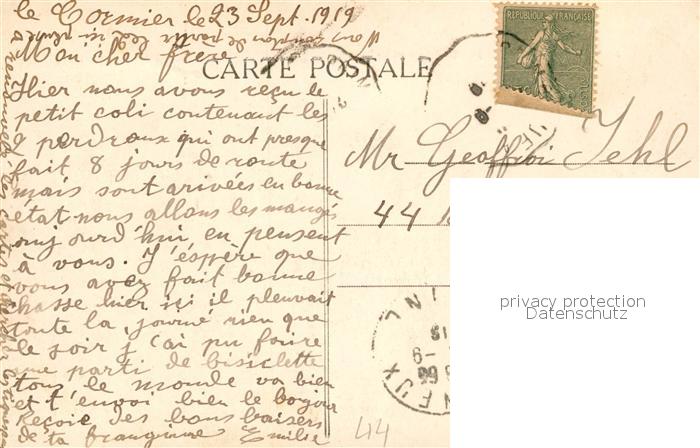 le Cormier le 23 Sept. 1919
Mon cher frere
CARTE POSTALE
REPUBLIQUE FRANÇAISE
Hier nous avons reçu le
petit coli contenant les
2 perdreaux qui ont presque
fait 8 jours de route
mais sont arivées en bonne
état nous allons les mangés
aujourd'hui en pensent
à vous. J'éspère que
vous avez fait bonne
chasse hier ici il pleuvait
toute la journé rien que
le soir j'ai pu faire
une parti de bisiclette
tous le monde va bien
et t'envoi bien le bonjour
Reçoie des bons baisers
de ta frangine Emilie
Mr Geoffroi Jehl
44
privacy protection
Datenschutz
44